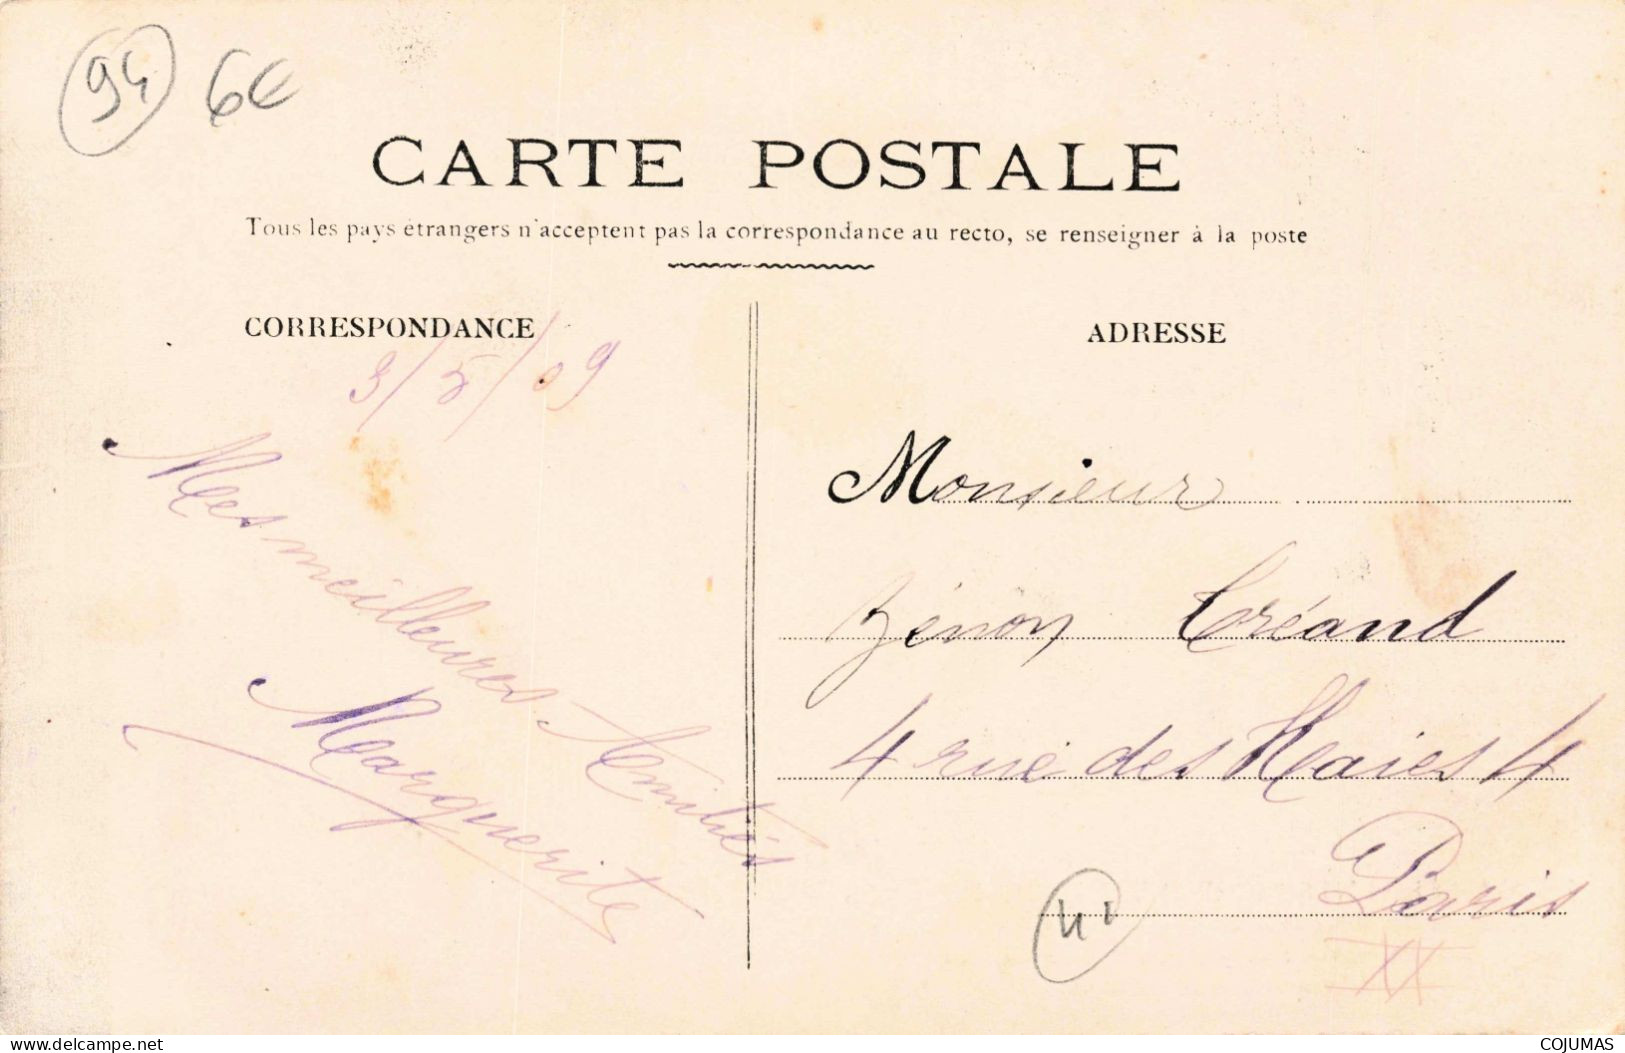 94 6€
CARTE POSTALE
Tous les pays étrangers n'acceptent pas la correspondance au recto, se renseigner à la poste
CORRESPONDANCE
3/5/09
Mes meilleures Amitiés
Marguerite
ADRESSE
Monsieur
Zénon Créand
4 rue des Haies 4
Paris
XX
41
www.delcampe.net
COJUMAS